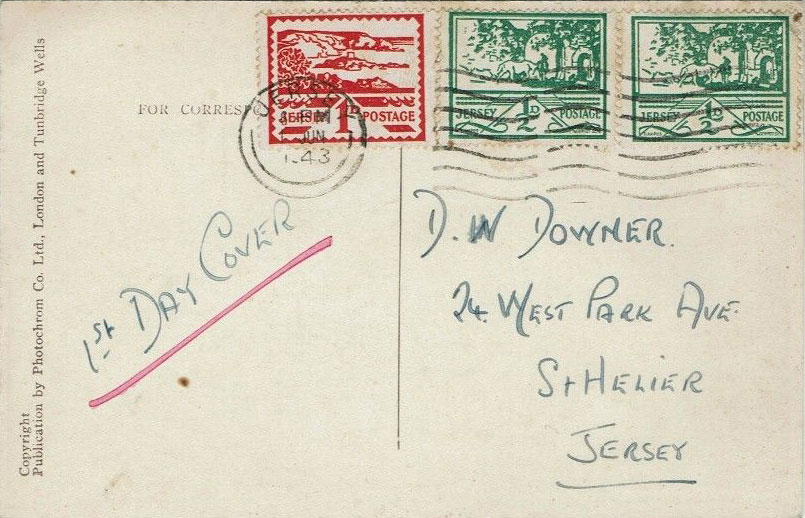 Copyright
Publication by Photochrom Co. Ltd., London and Tunbridge Wells
FOR CORRESPO
JERSEY 1D POSTAGE
JERSEY ½D POSTAGE
JERSEY ½D POSTAGE
JERSEY
PM
JUN
1st DAY COVER
D. W DOWNER.
24. WEST PARK AVE.
St HELIER
JERSEY